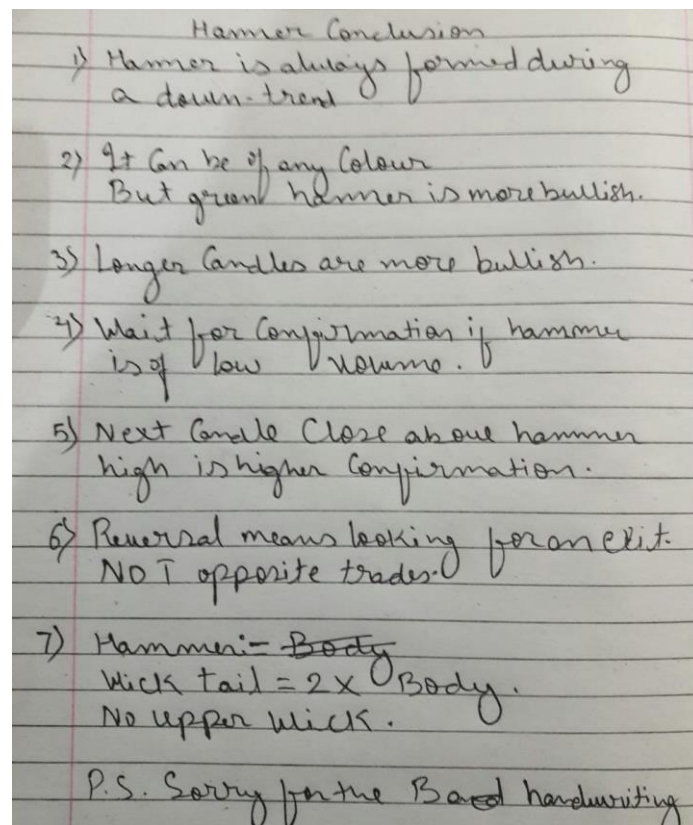 Hammer Conclusion
1) Hammer is always formed during
a down-trend
2) It Can be of any Colour
But green hammer is more bullish.
3) Longer Candles are more bullish.
4) Wait for Confirmation if hammer
is of low volume.
5) Next Candle Close above hammer
high is higher Confirmation.
6) Reversal means looking for an exit.
NOT opposite trades.
7) Hammer:- Body
Wick tail = 2x Body.
No upper Wick.
P.S. Sorry for the Bad handwriting